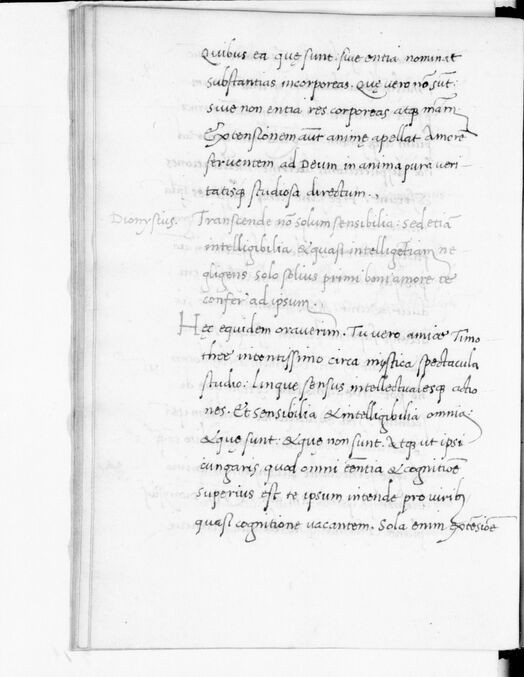 Quibus ea quę sunt: siue entia nominat
substantias incorporeas. Quę vero nō sūt:
siue non entia res corporeas atq; mām
Extensionem aūt animę apellat Amorē
feruentem ad Deum in anima pura veri
tatisq; studiosa directum.,
Dionysius. Transcende nō solum sensibilia: sed etiā
intelligibilia & quasi intelligētiam ne
gligens solo solius primi boni amore te
confer ad ipsum.
Hęc equidem orauerim. Tu vero amice Timo
thee intentissimo circa mystica spectacula
studio: Linque sensus intellectualesq; actio
nes. Et sensibilia & intelligibilia omnia:
& quę sunt: & quę non sunt. Atq; ut ipsi
iungaris quod omni eēntia & cognitiōe
superius est te ipsum intende pro virib;
quasi cognitione vacantem. Sola enim extēsiōe